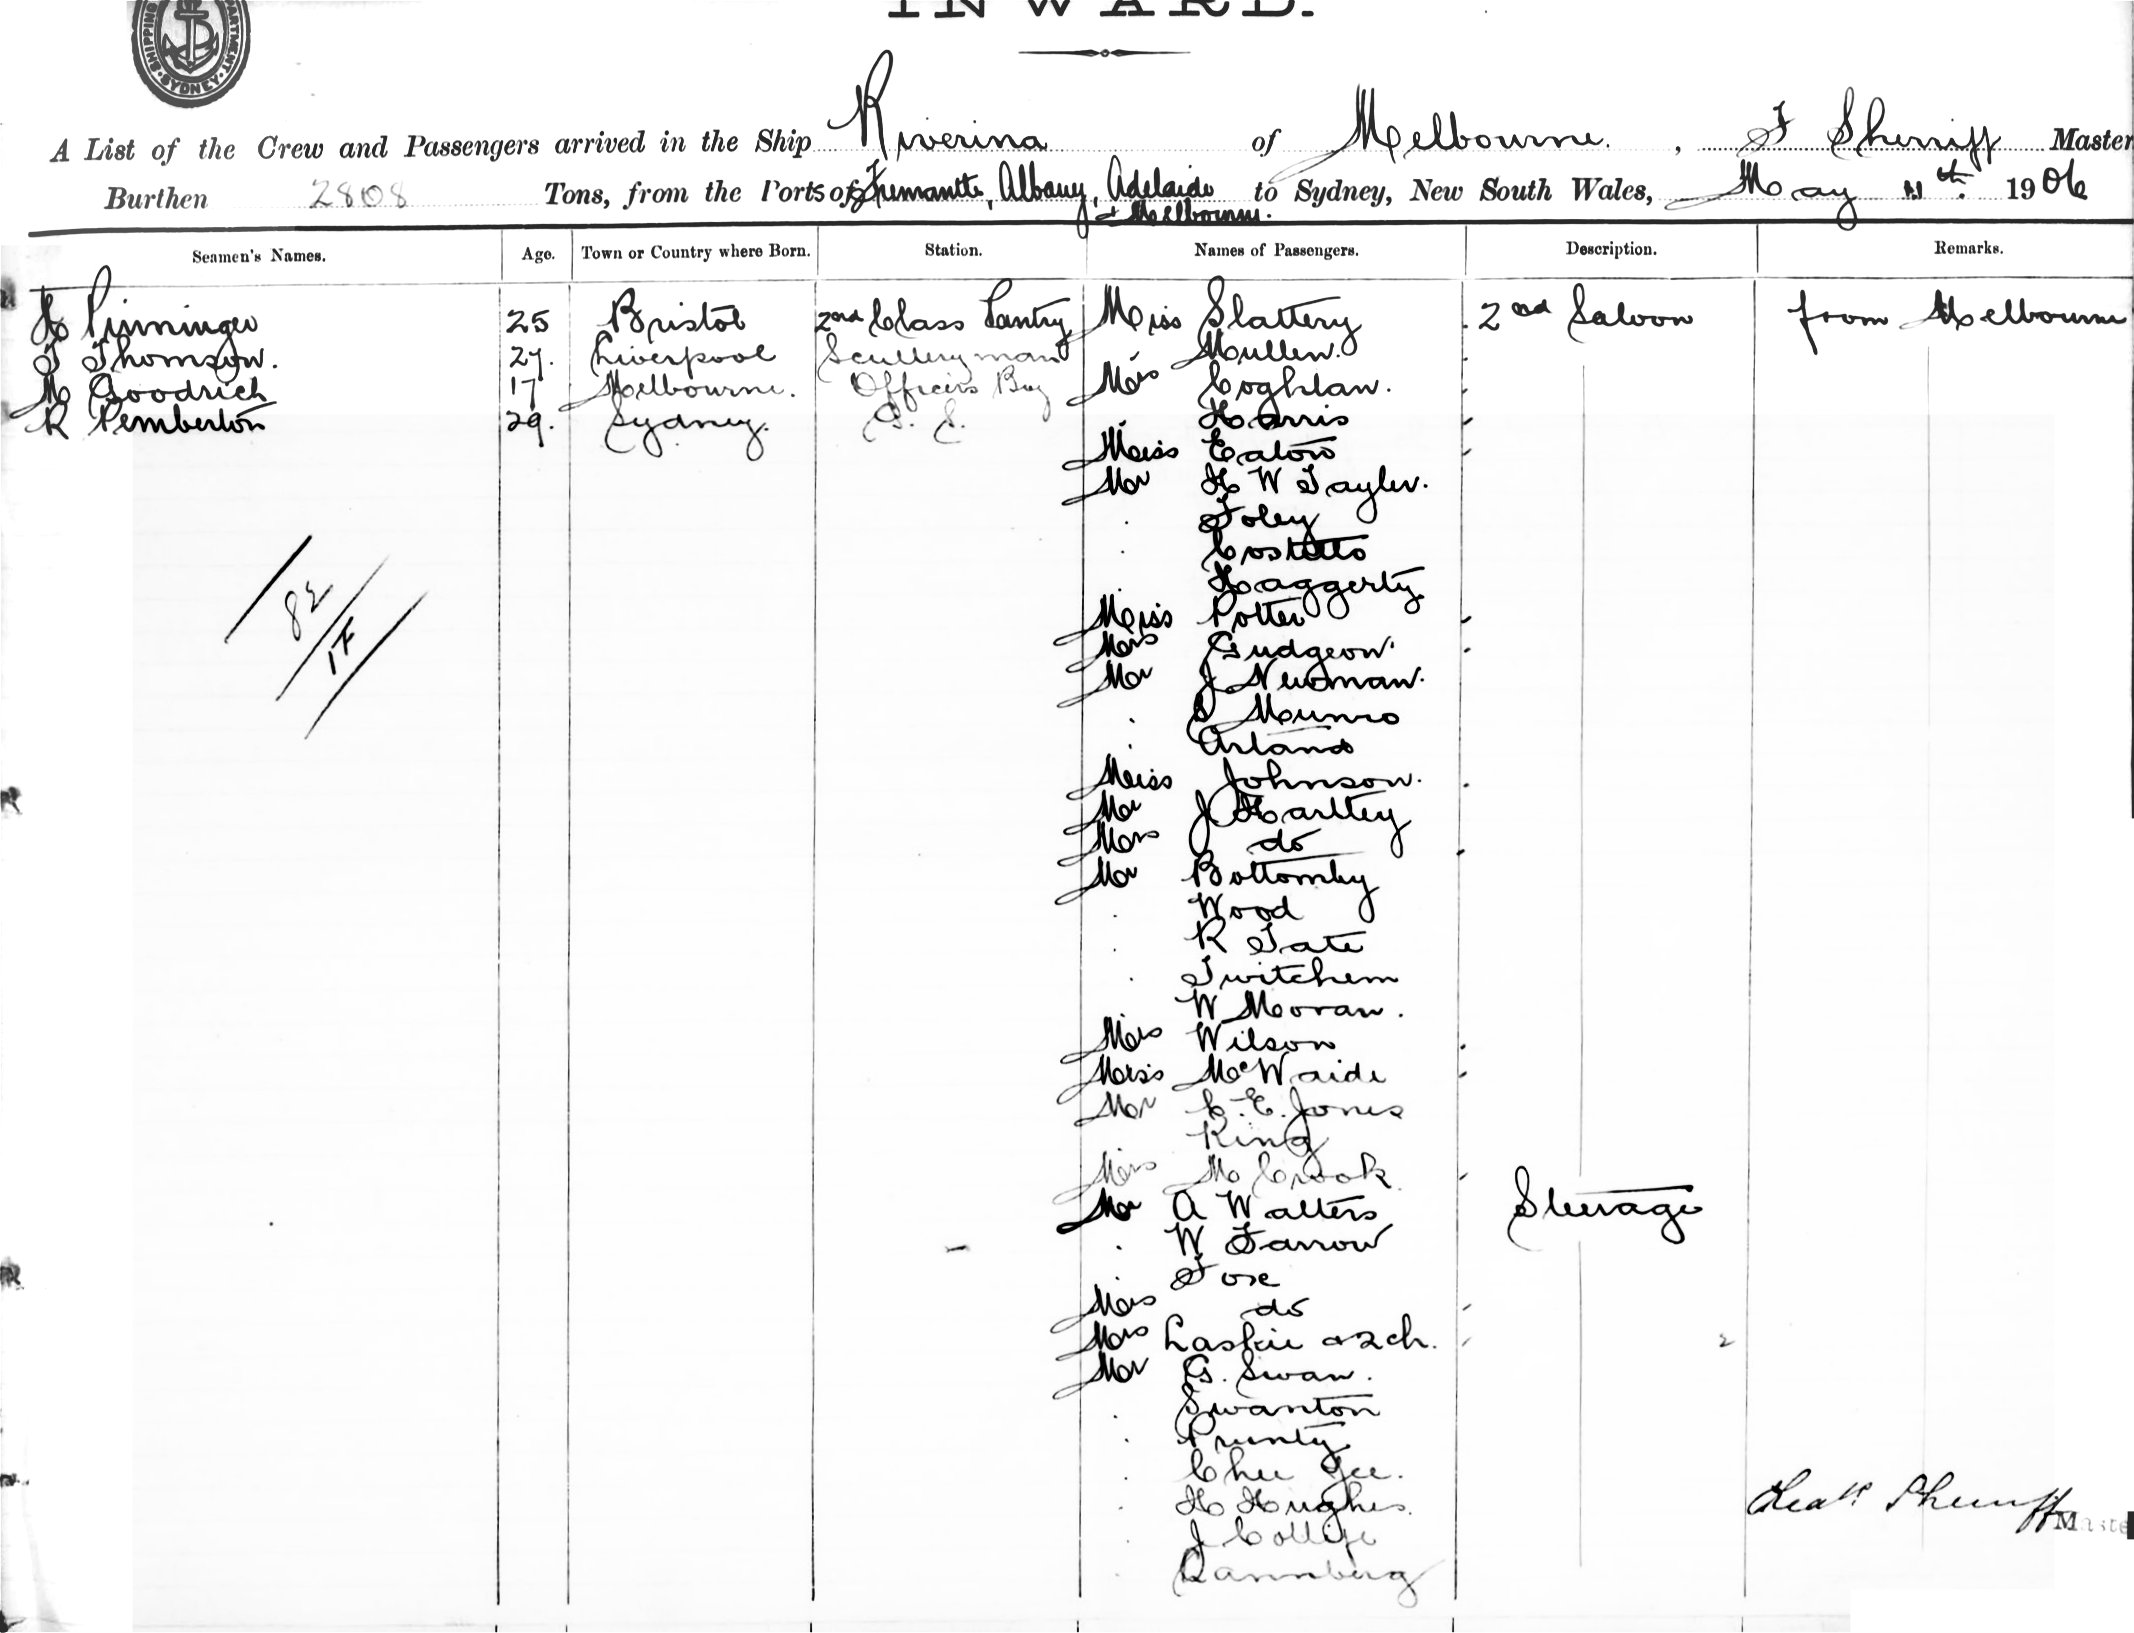 INWARD.
SHIPPING DEPARTMENT SYDNEY
A List of the Crew and Passengers arrived in the Ship Riverina of Melbourne. , F Sherriff Master
Burthen 2808 Tons, from the Ports of Fremantle, Albany, Adelaide to Sydney, New South Wales, May 11th. 1906
& Melbourne.
Seamen's Names. Age. Town or Country where Born. Station. Names of Passengers. Description. Remarks.
H Pinninger 25 Bristol 2nd Class Pantry Miss Slattery 2nd Saloon from Melbourne
T Thomson. 27. Liverpool Sculleryman " Mullen.
M Goodrich 17 Melbourne. Officers Boy Mrs Coghlan.
R Pemberton 29. Sydney. G. S. " Harris
Miss Eaton
Mr H W Tayler.
Foley
Costello
Haggerty
Miss Potter
Mrs Gudgeon.
Mr J Newman.
Munro
Arland
Miss Johnson.
Mr J Hartley
Mrs do
Mr Bottomley
Wood
R Tate
Twitchem
W Moran.
Mrs Wilson
Miss McWaide
Mr C. E. Jones
King
M Crook
Mr A Walters Steerage
W Farrow
Fox
Mrs do
Mrs Laskie & 2 ch. 2
Mr G. Swan.
Swanton
Prunty
Chee Gee.
H Hughes.
J
Dannberg
82
1F
Sherriff
Master